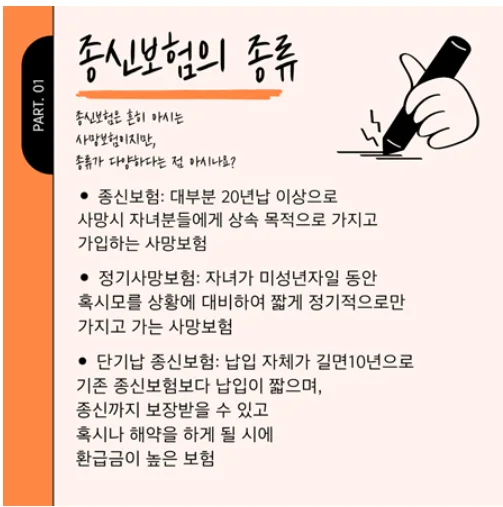 PART. 01
종신보험의 종류
종신보험은 흔히 아시는
사망보험이지만,
종류가 다양하다는 점 아시나요?
● 종신보험: 대부분 20년납 이상으로
사망시 자녀분들에게 상속 목적으로 가지고
가입하는 사망보험
● 정기사망보험: 자녀가 미성년자일 동안
혹시모를 상황에 대비하여 짧게 정기적으로만
가지고 가는 사망보험
● 단기납 종신보험: 납입 자체가 길면10년으로
기존 종신보험보다 납입이 짧으며,
종신까지 보장받을 수 있고
혹시나 해약을 하게 될 시에
환급금이 높은 보험